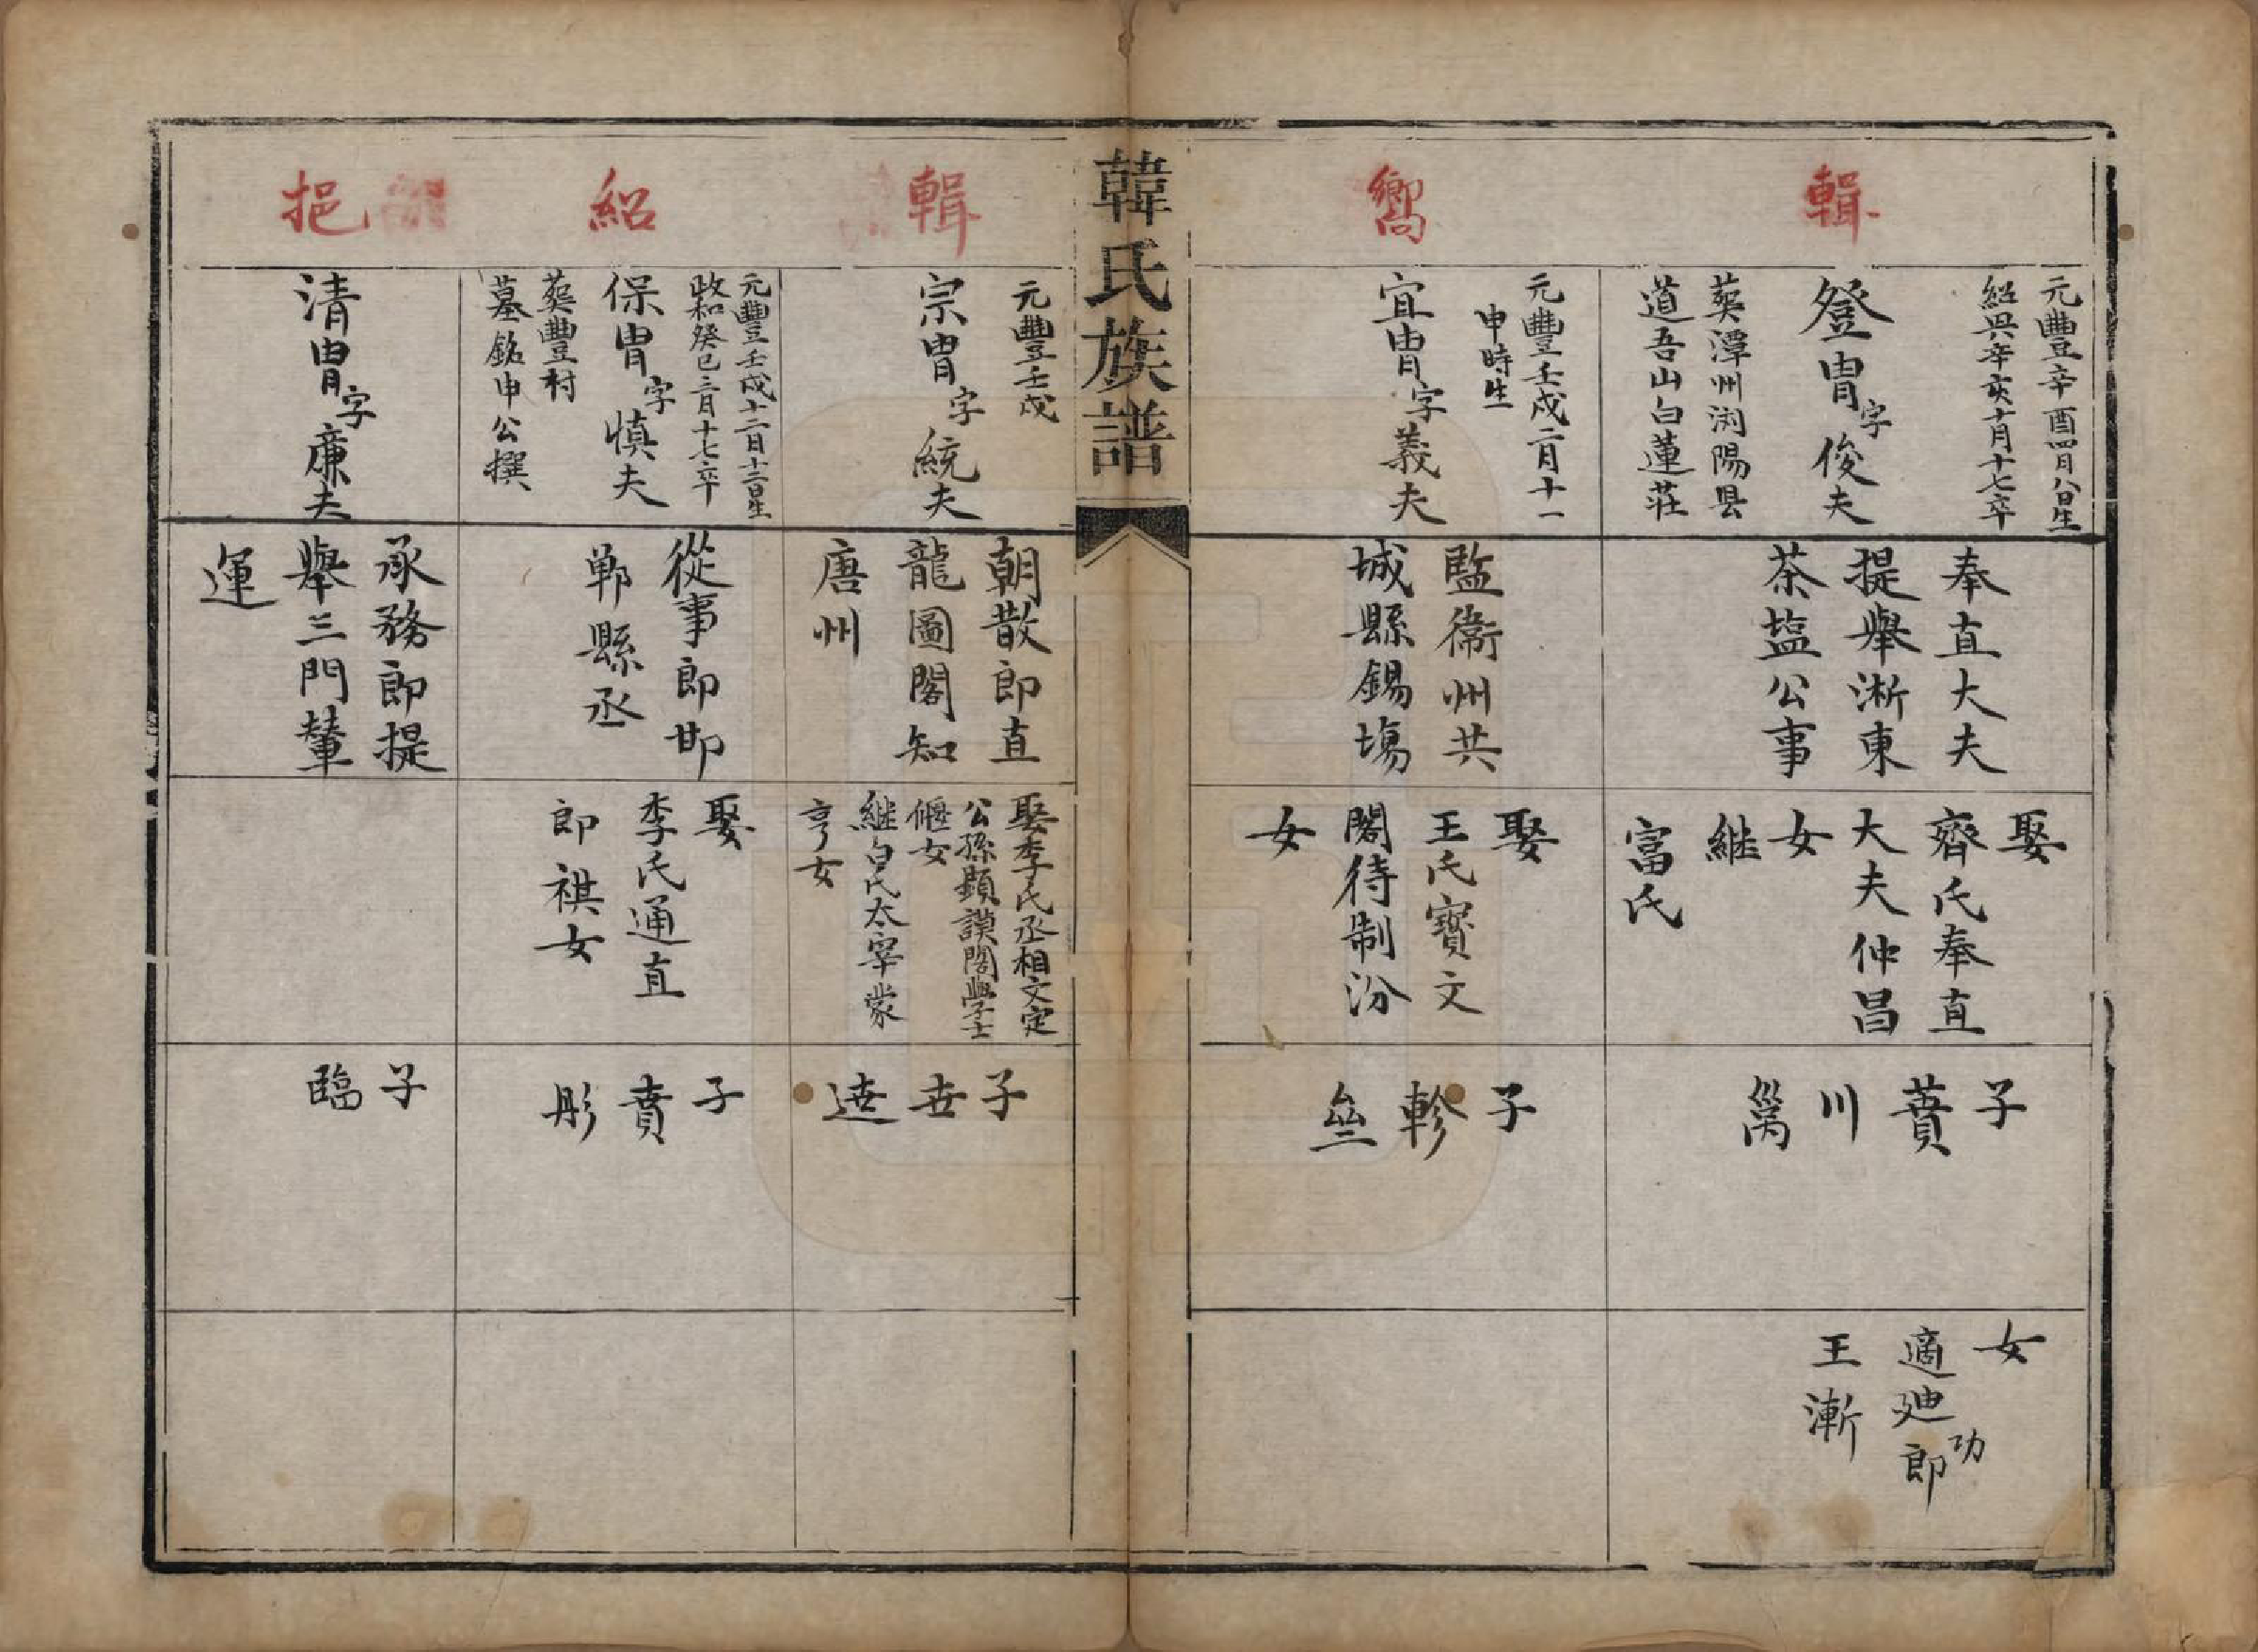 輯
元豐辛酉四月八日生
紹興辛亥十月十七卒
登冑字俊夫
葬潭州瀏陽县
道吾山白蓮莊
奉直大夫
提舉淅東
茶塩公事
娶
齊氏奉直
大夫仲昌
女
継
富氏
子
蕡
川
女
適廸功郎
王漸
嚮
元豐壬戍二月十一
申時生
宜冑字義夫
監衞州共
城縣錫塲
娶
王氏寳文
閣待制汾
女
子
軫
亝
韓氏族譜
輯
元豐壬戍
宗冑字統夫
朝散郎直
龍圖閣知
唐州
娶李氏丞相文定
公孫顯謨閣學士
偃女
継白氏太宰蒙
亨女
子
㐀
逵
紹
元豐壬戍十二月十二日生
政和癸巳三月十七卒
保冑字慎夫
葬豐村
墓銘申公撰
從事郎
郸縣丞
娶
李氏通直
郎祺女
子
賁
彤
挹
清冑字廉夫
承務郎提
舉三門輦
運
子
臨